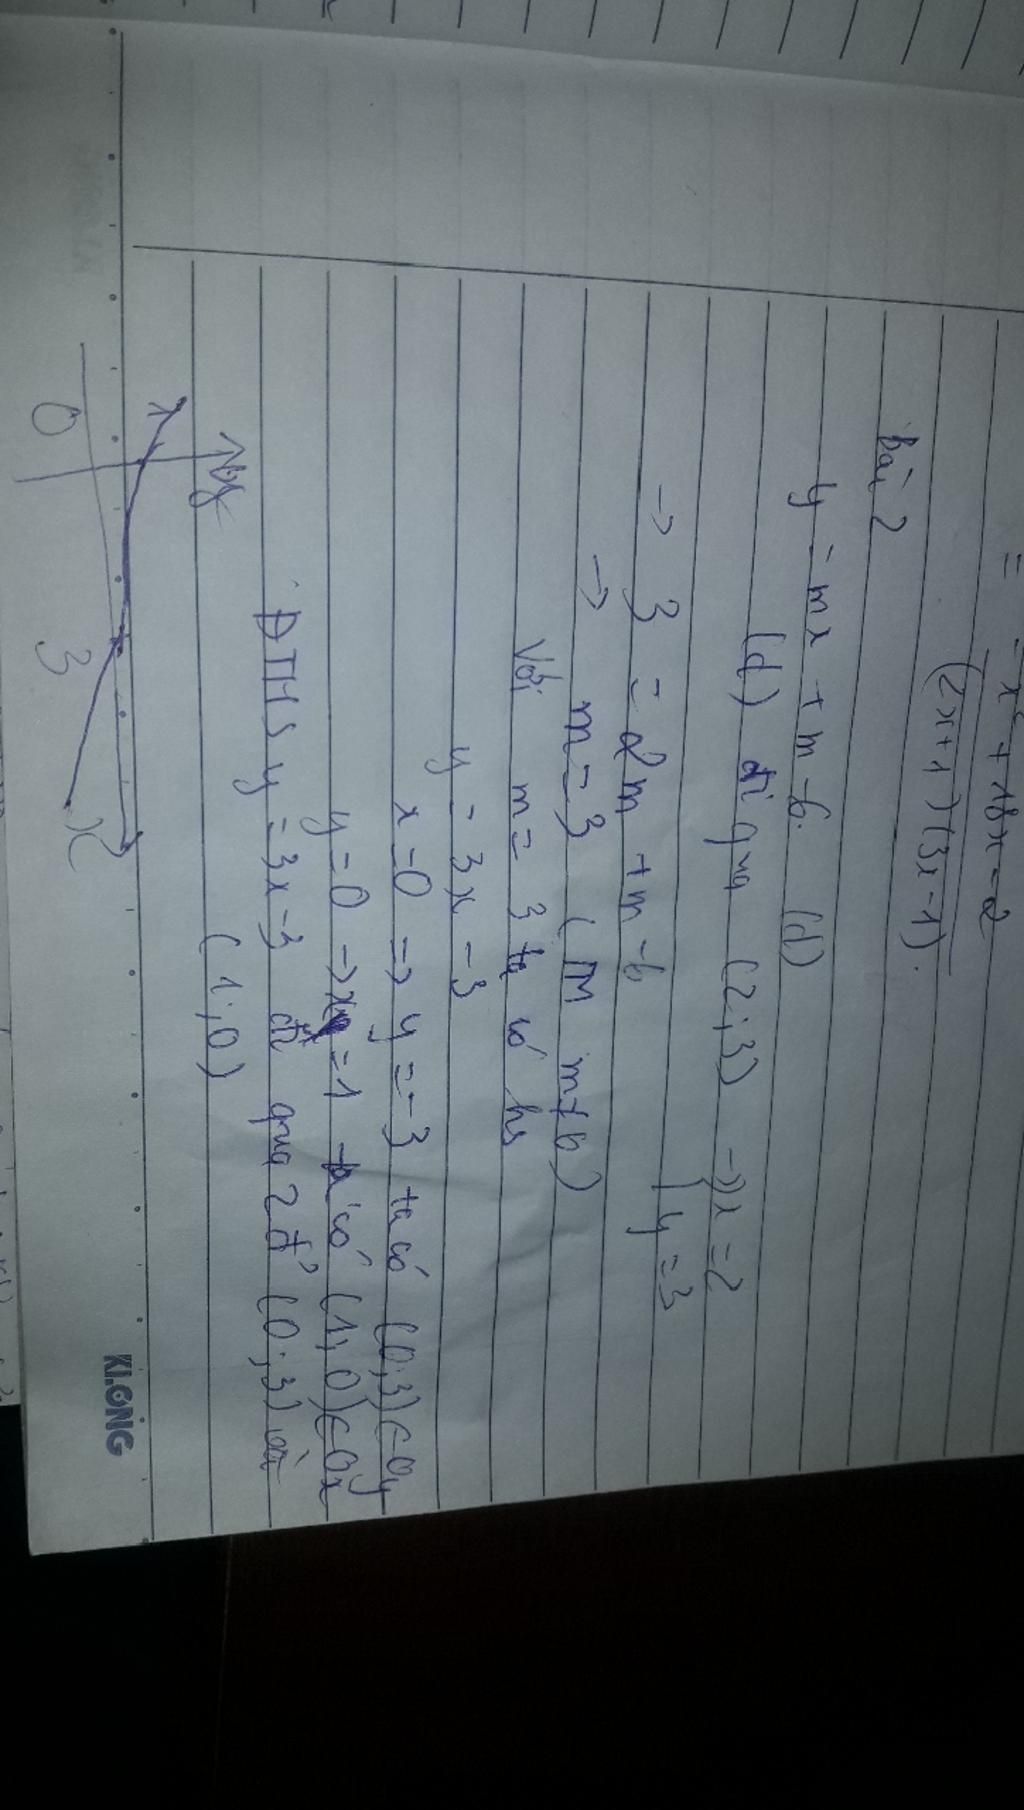 = -x² + 18x - 2
(2x+1)(3x-1).
bài 2
y = mx + m - 6. (d)
(d) đi qua (2;3) → { x = 2
y = 3
→ 3 = 2m + m - 6
→ m = 3 (TM m ≠ 0)
Với m = 3 ta có hs
y = 3x - 3
x = 0 => y = -3 ta có (0;3) ∈ Oy
y = 0 → x = 1 ta có (1;0) ∈ Ox
ĐTHS y = 3x - 3 đi qua 2 đ' (0;3) và
(1;0)
y
0
3
x
KLONG